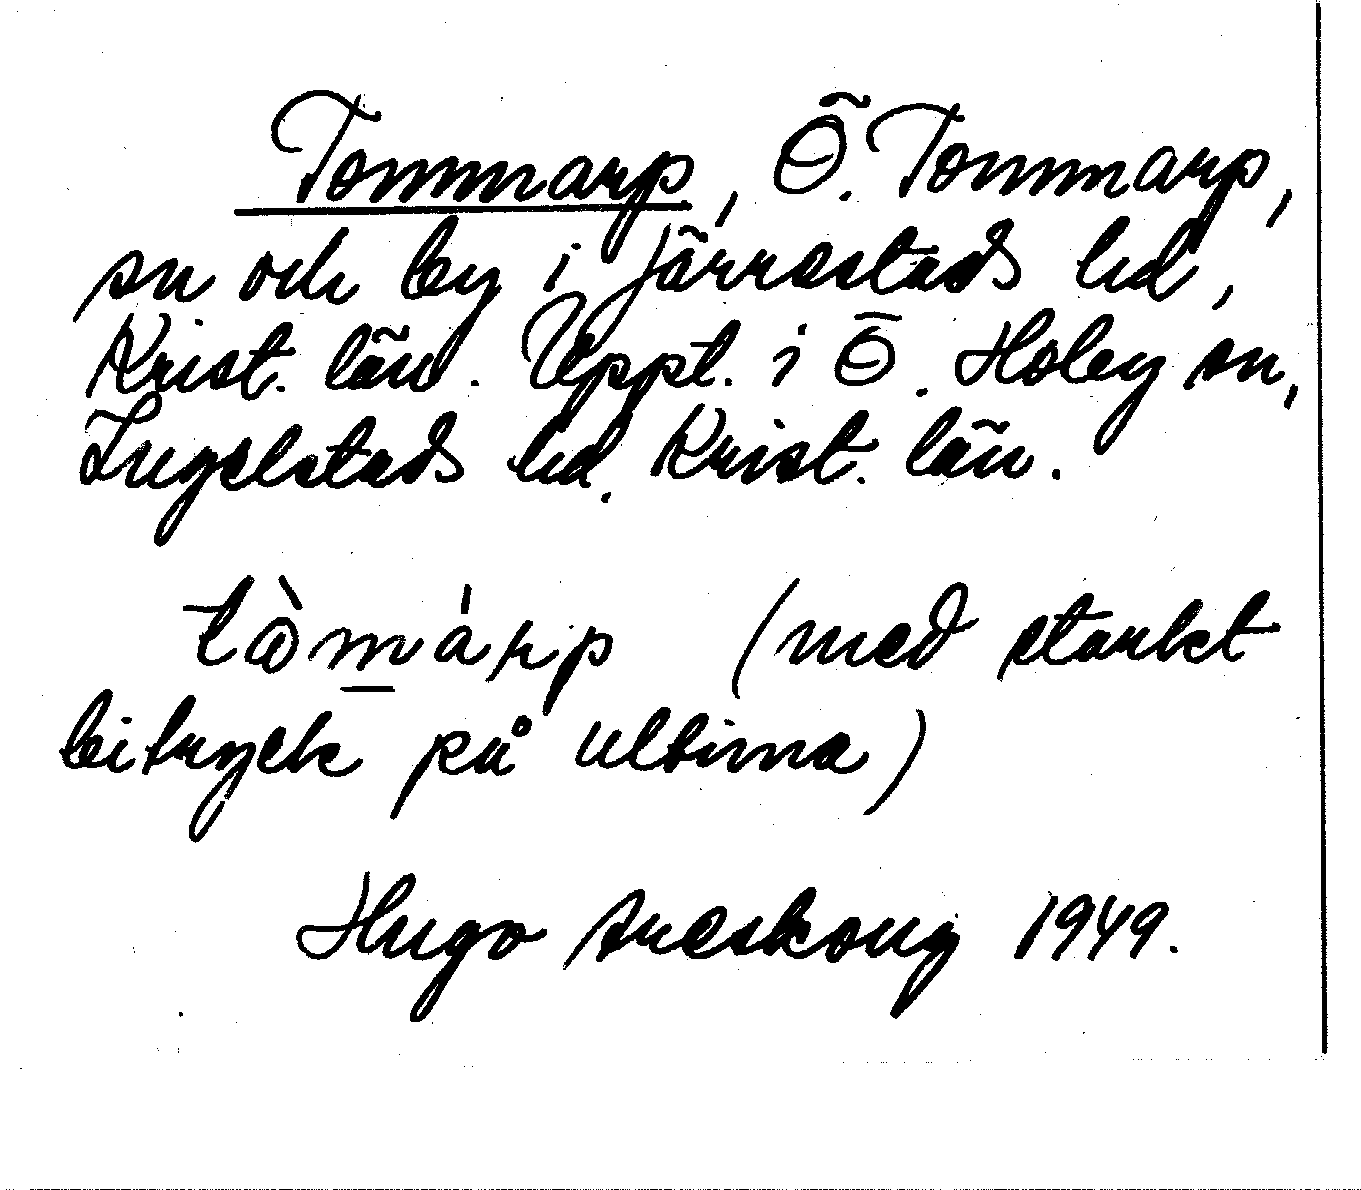 Tommarp, Ö. Tommarp,
sn och by i Järrestads hd,
Krist. län. Uppt. i Ö. Hoby sn,
Ingelstads hd. Krist. län.
(med starkt
bitryck på ultima)
Hugo Areskoug 1949.